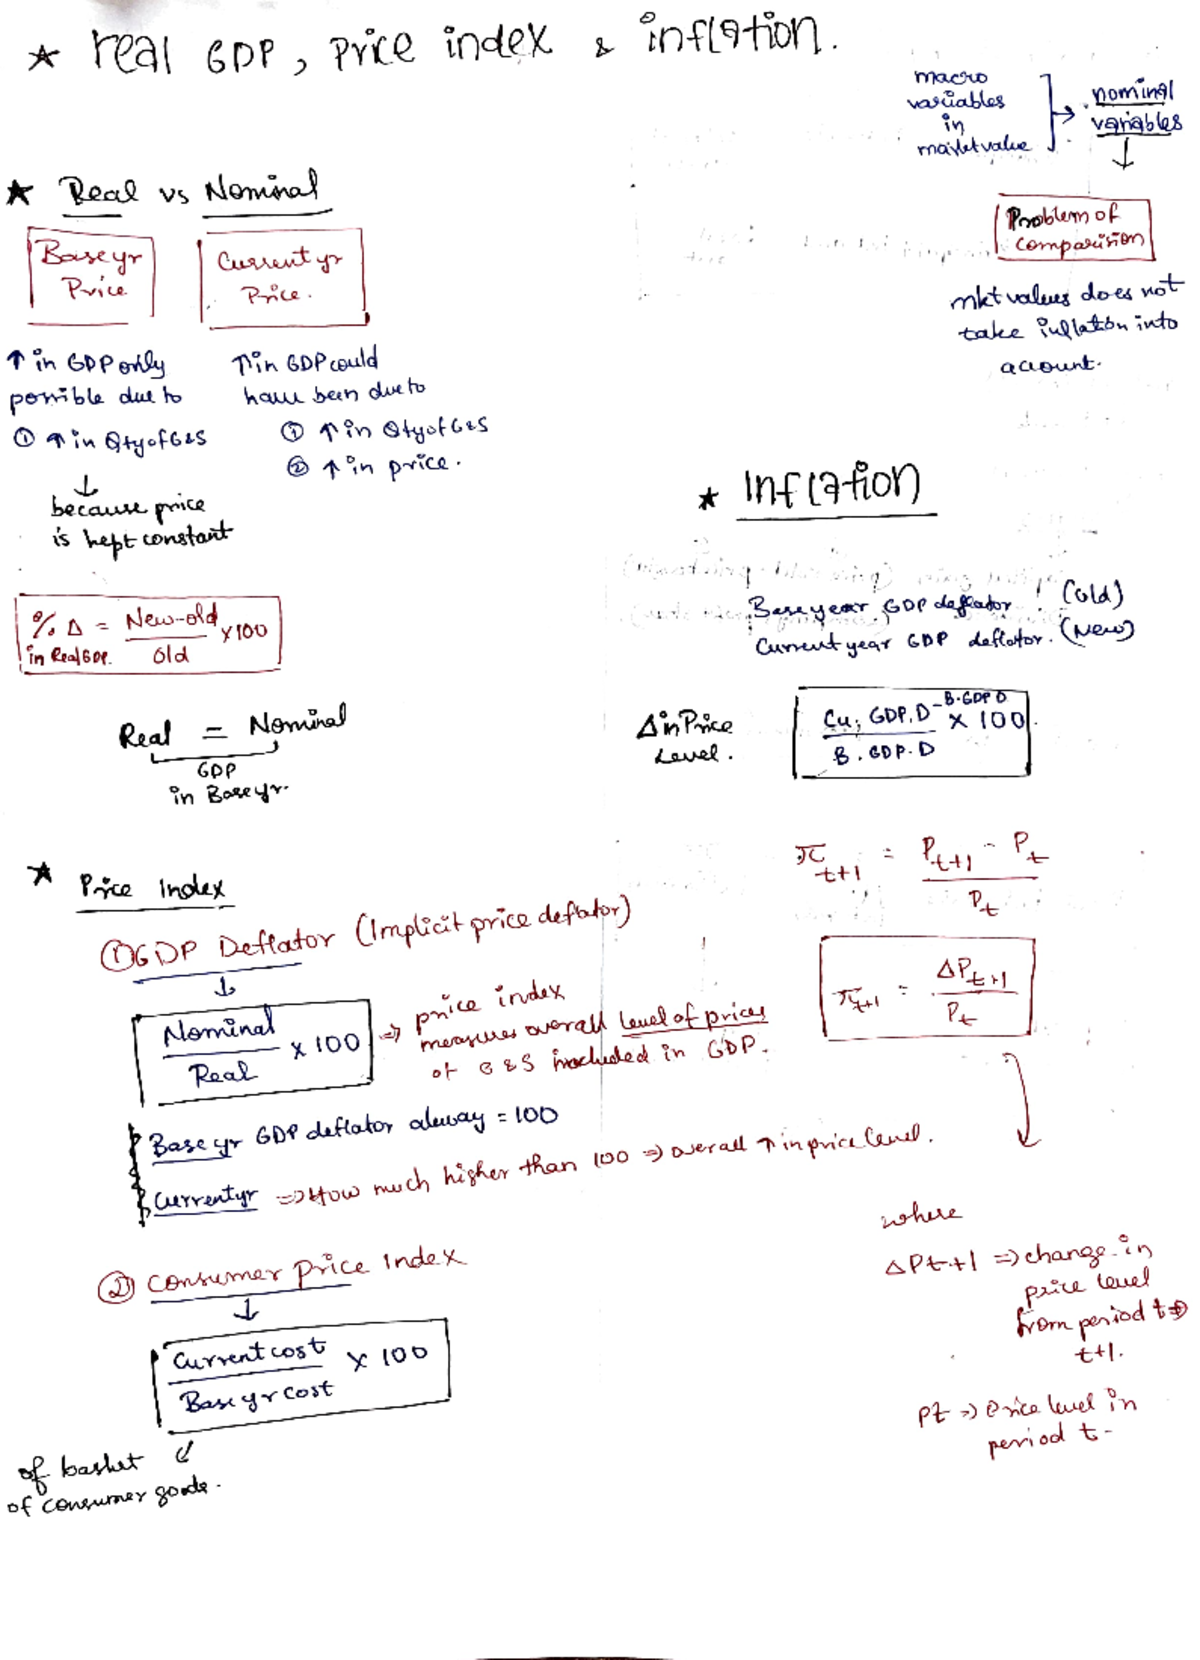 ★ real GDP, Price index & inflation.
macro
variables
in
market value
nominal
variables
Problem of
comparision
mkt values does not
take inflation into
account.
★ Real vs Nominal
Base yr
Price
Current yr
Price.
↑ in GDP only
possible due to
① ↑ in Qty of G&S
↓
because price
is kept constant
↑ in GDP could
have been due to
① ↑ in Qty of G&S
② ↑ in price.
% Δ = New-old x100
in Real GDP. old
Real = Nominal
GDP
in Base yr.
★ Inflation
Base year GDP deflator (old)
Current year GDP deflator. (New)
Δ in Price
Level.
Cu, GDP.D - B.GDP D x 100
B.GDP.D
π t+1 = P t+1 - P t
P t
π t+1 = ΔP t+1
P t
where
ΔPt+1 ⇒ change in
price level
from period t ⇒
t+1.
Pt ⇒ Price level in
period t-
★ Price Index
① GDP Deflator (Implicit price deflator)
↓
Nominal x 100
Real
⇒ price index
measures overall level of prices
of G&S included in GDP.
Base yr GDP deflator alway = 100
Current yr ⇒ How much higher than 100 ⇒ overall ↑ in price level.
② Consumer Price Index
↓
Current cost x 100
Base yr cost
of basket
of consumer goods.